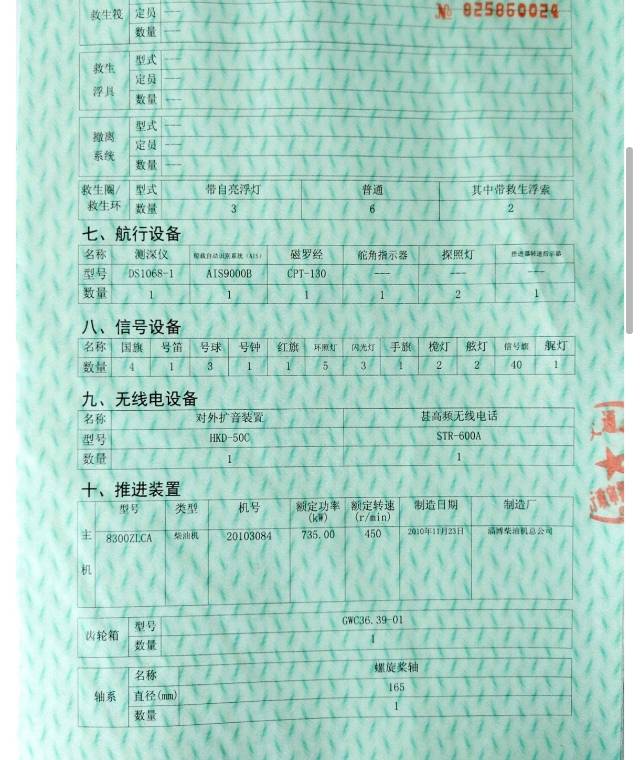 救生筏 定员 ---
数量 ---
№ 825860024
救生浮具 型式 ---
定员 ---
数量 ---
撤离系统 型式 ---
定员 ---
数量 ---
救生圈/救生环 型式 带自亮浮灯 普通 其中带救生浮索
数量 3 6 2
七、航行设备
名称 测深仪 船载自动识别系统(AIS) 磁罗经 舵角指示器 探照灯 推进器转速指示器
型号 DS1068-1 AIS9000B CPT-130 --- --- ---
数量 1 1 1 1 2 1
八、信号设备
名称 国旗 号笛 号球 号钟 红旗 环照灯 闪光灯 手旗 桅灯 舷灯 信号旗 艉灯
数量 4 1 3 1 1 5 3 1 2 2 40 1
九、无线电设备
名称 对外扩音装置 甚高频无线电话
型号 HKD-50C STR-600A
数量 1 1
十、推进装置
主机 型号 类型 机号 额定功率(kW) 额定转速(r/min) 制造日期 制造厂
8300ZLCA 柴油机 20103084 735.00 450 2010年11月23日 淄博柴油机总公司
齿轮箱 型号 GWC36.39-01
数量 1
轴系 名称 螺旋桨轴
直径(mm) 165
数量 1